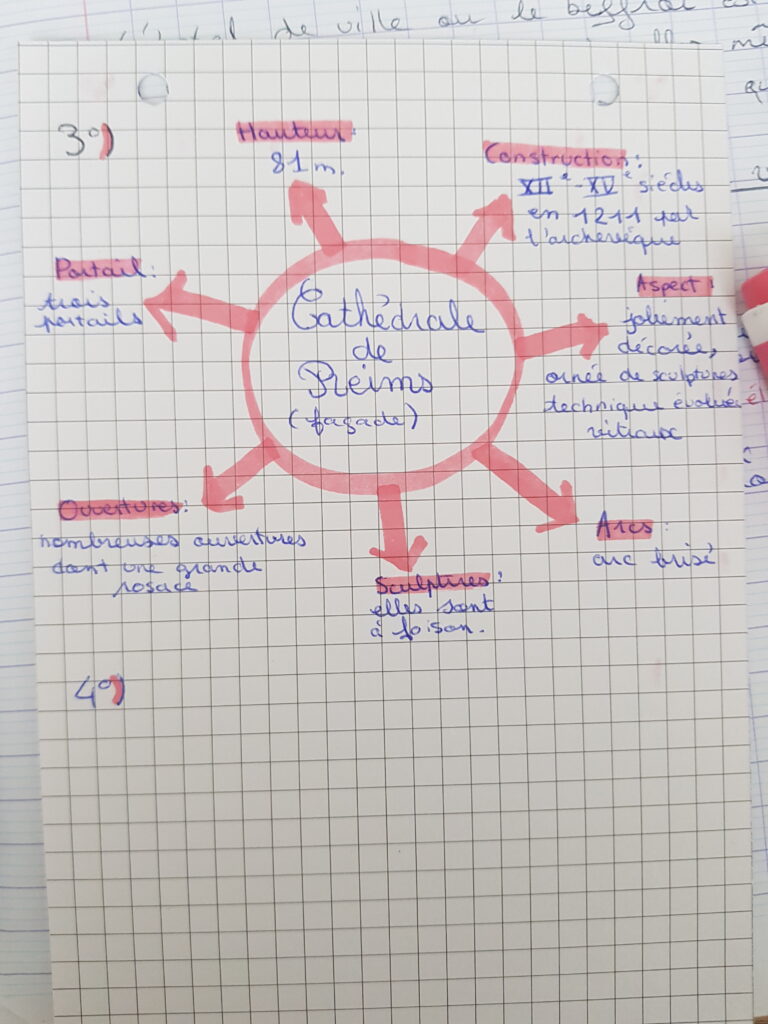 de ville ou le beffroi
3°)
Hauteur:
81m.
Construction:
XIIe-XVe siècles
en 1211 par
l'archevêque
Portail:
trois
portails
Aspect:
joliement
décorée,
ornée de sculptures
technique évoluée
vitraux
Cathédrale
de
Reims
(façade)
Ouvertures:
nombreuses ouvertures
dont une grande
rosace
Arcs:
arc brisé
Sculptures:
elles sont
à foison.
4°)